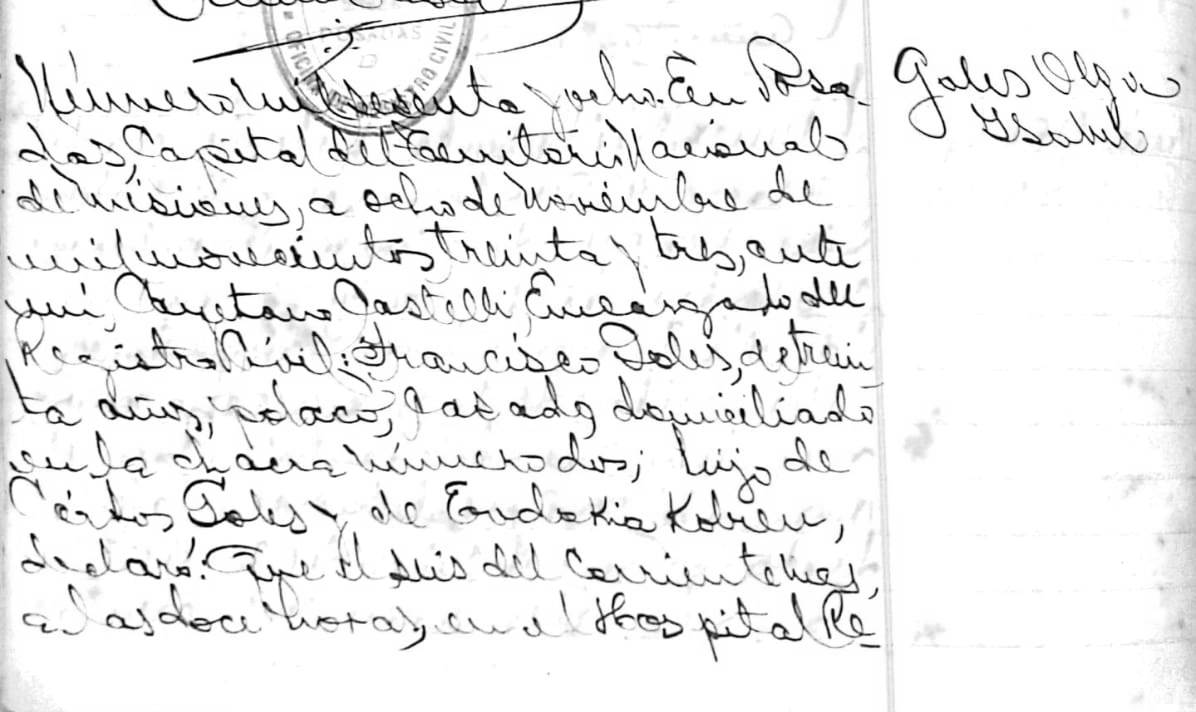 Número mil sesenta y ocho. En Posa-
das, Capital del Territorio Nacional
de Misiones, a ocho de Noviembre de
mil novecientos treinta y tres, ante
mí, Cayetano Castelli, Encargado del
Registro Civil: Francisco Goles, de trein
ta años, polaco, casado, domiciliado
en la chacra número dos; hijo de
Cárlos Goles y de Eudokia Kobren,
declaró: Que el seis del corriente mes,
a las doce horas, en el Hospital Re-
Goles Olga
Ysabel
OFICINA REGISTRO CIVIL
POSADAS